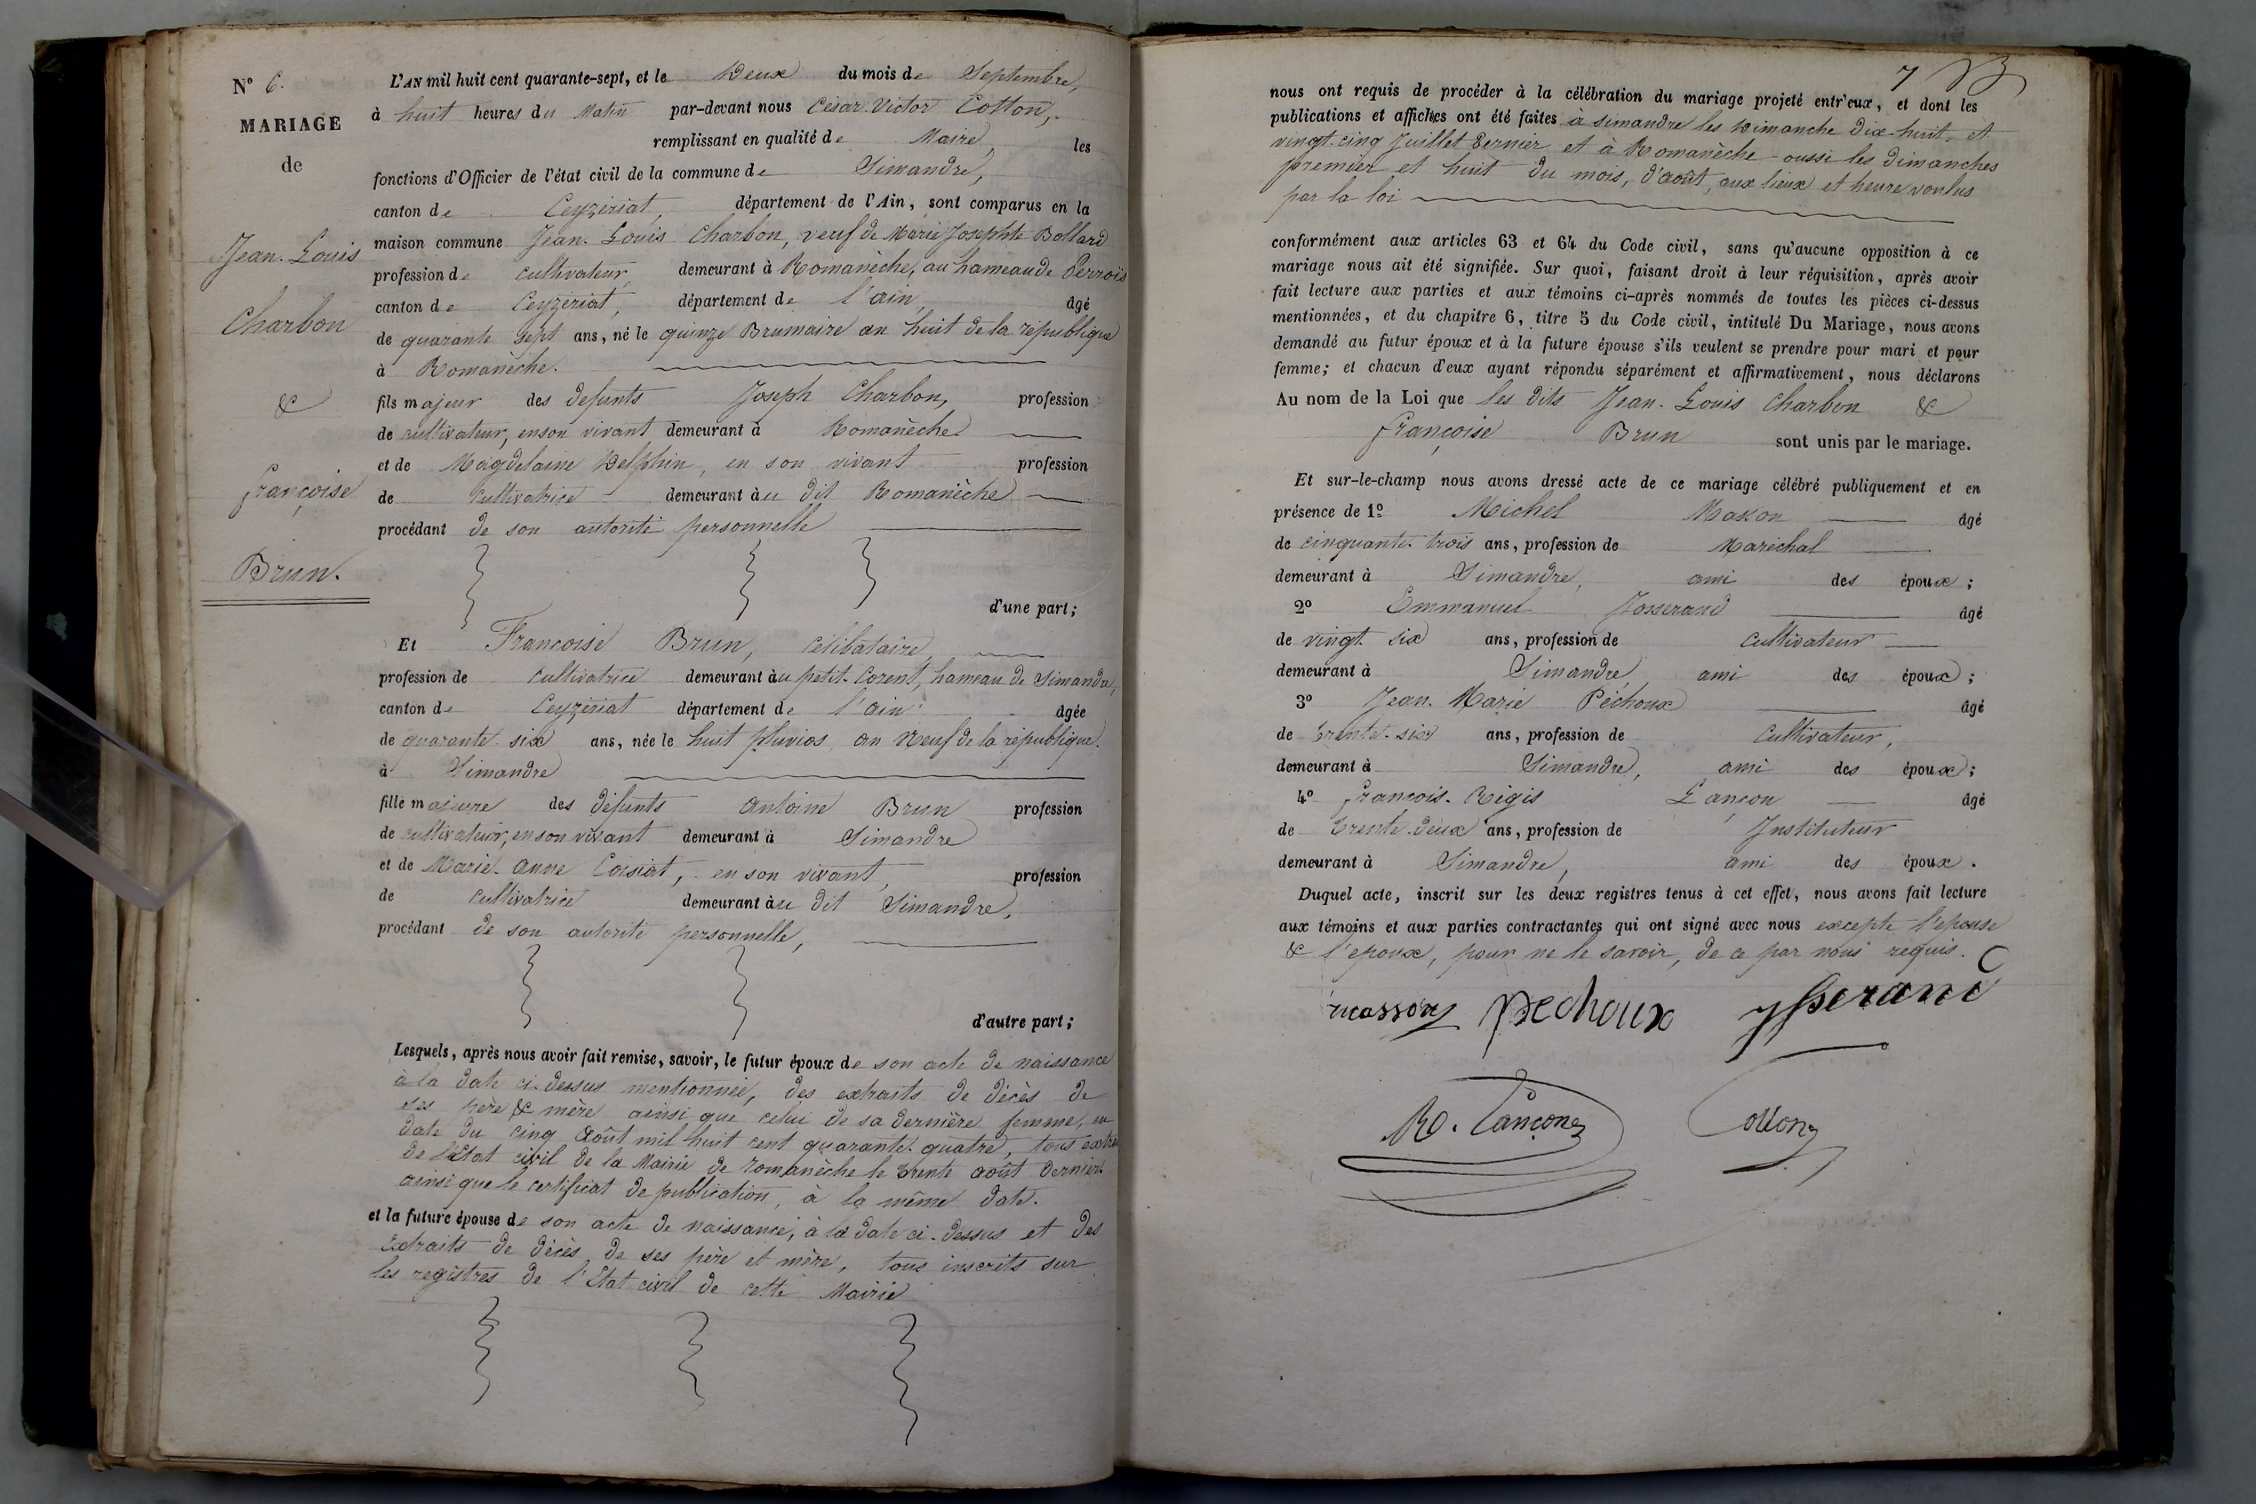 N° 6.
MARIAGE
de
Jean-Louis
Charbon
&
françoise
Brun.
L'AN mil huit cent quarante-sept, et le Deux du mois de Septembre,
à huit heures du Matin par-devant nous César-Victor Cotton,
remplissant en qualité de Maire, les
fonctions d'Officier de l'état civil de la commune de Simandre,
canton de Ceyzériat, département de l'Ain, sont comparus en la
maison commune Jean-Louis Charbon, veuf de Marie Josephte Bollard
profession de cultivateur, demeurant à Romanèche, au hameau de
canton de Ceyzériat, département de l'ain, âgé
de quarante sept ans, né le quinze Brumaire an huit de la république
à Romanèche.
fils majeur des défunts Joseph Charbon, profession
de cultivateur, en son vivant demeurant à Romanèche
et de Magdelaine Delphin, en son vivant profession
de cultivatrice demeurant au dit Romanèche
procédant de son autorité personnelle
d'une part;
Et Françoise Brun, célibataire,
profession de cultivatrice demeurant au petit-Corent, hameau de Simandre,
canton de Ceyzériat département de l'ain âgée
de quarante-six ans, née le huit pluvios an Neuf de la république.
à Simandre
fille majeure des défunts antoine Brun profession
de cultivateur, en son vivant demeurant à Simandre
et de Marie-anne Corsiat, en son vivant, profession
de cultivatrice demeurant au dit Simandre,
procédant de son autorité personnelle,
d'autre part;
Lesquels, après nous avoir fait remise, savoir, le futur époux de son acte de naissance
à la date ci-dessus mentionnée, des extraits de décès de
ses père & mère ainsi que celui de sa dernière femme, en
date du cinq août mil huit cent quarante-quatre, tous
de l'Etat civil de la Mairie de romanèche le trente août dernier
ainsi que le certificat de publication, à la même date.
et la future épouse de son acte de naissance, à la date ci-dessus et des
Extraits de décès de ses père et mère, tous inscrits sur
les registres de l'Etat civil de cette Mairie
7
nous ont requis de procéder à la célébration du mariage projeté entr'eux, et dont les
publications et affiches ont été faites à simandre les Dimanche dix-huit et
vingt-cinq Juillet Dernier et à Romanèche aussi les dimanches
premier et huit du mois, d'août, aux lieux et heure voulus
par la loi
conformément aux articles 63 et 64 du Code civil, sans qu'aucune opposition à ce
mariage nous ait été signifiée. Sur quoi, faisant droit à leur réquisition, après avoir
fait lecture aux parties et aux témoins ci-après nommés de toutes les pièces ci-dessus
mentionnées, et du chapitre 6, titre 5 du Code civil, intitulé Du Mariage, nous avons
demandé au futur époux et à la future épouse s'ils veulent se prendre pour mari et pour
femme; et chacun d'eux ayant répondu séparément et affirmativement, nous déclarons
Au nom de la Loi que les dits Jean-Louis Charbon &
françoise Brun sont unis par le mariage.
Et sur-le-champ nous avons dressé acte de ce mariage célébré publiquement et en
présence de 1° Michel Mason âgé
de cinquante-trois ans, profession de Maréchal
demeurant à Simandre, ami des époux;
2° Emmanuel Josserand âgé
de vingt-six ans, profession de cultivateur
demeurant à Simandre, ami des époux;
3° Jean-Marie Péchoux âgé
de trente-six ans, profession de Cultivateur,
demeurant à Simandre, ami des époux;
4° françois-Régis Lançon âgé
de trente-deux ans, profession de Instituteur
demeurant à Simandre, ami des époux.
Duquel acte, inscrit sur les deux registres tenus à cet effet, nous avons fait lecture
aux témoins et aux parties contractantes qui ont signé avec nous excepté l'épouse
& l'époux, pour ne le savoir, de ce par nous requis.
masson pechoux josserand
R. Lançon Cotton